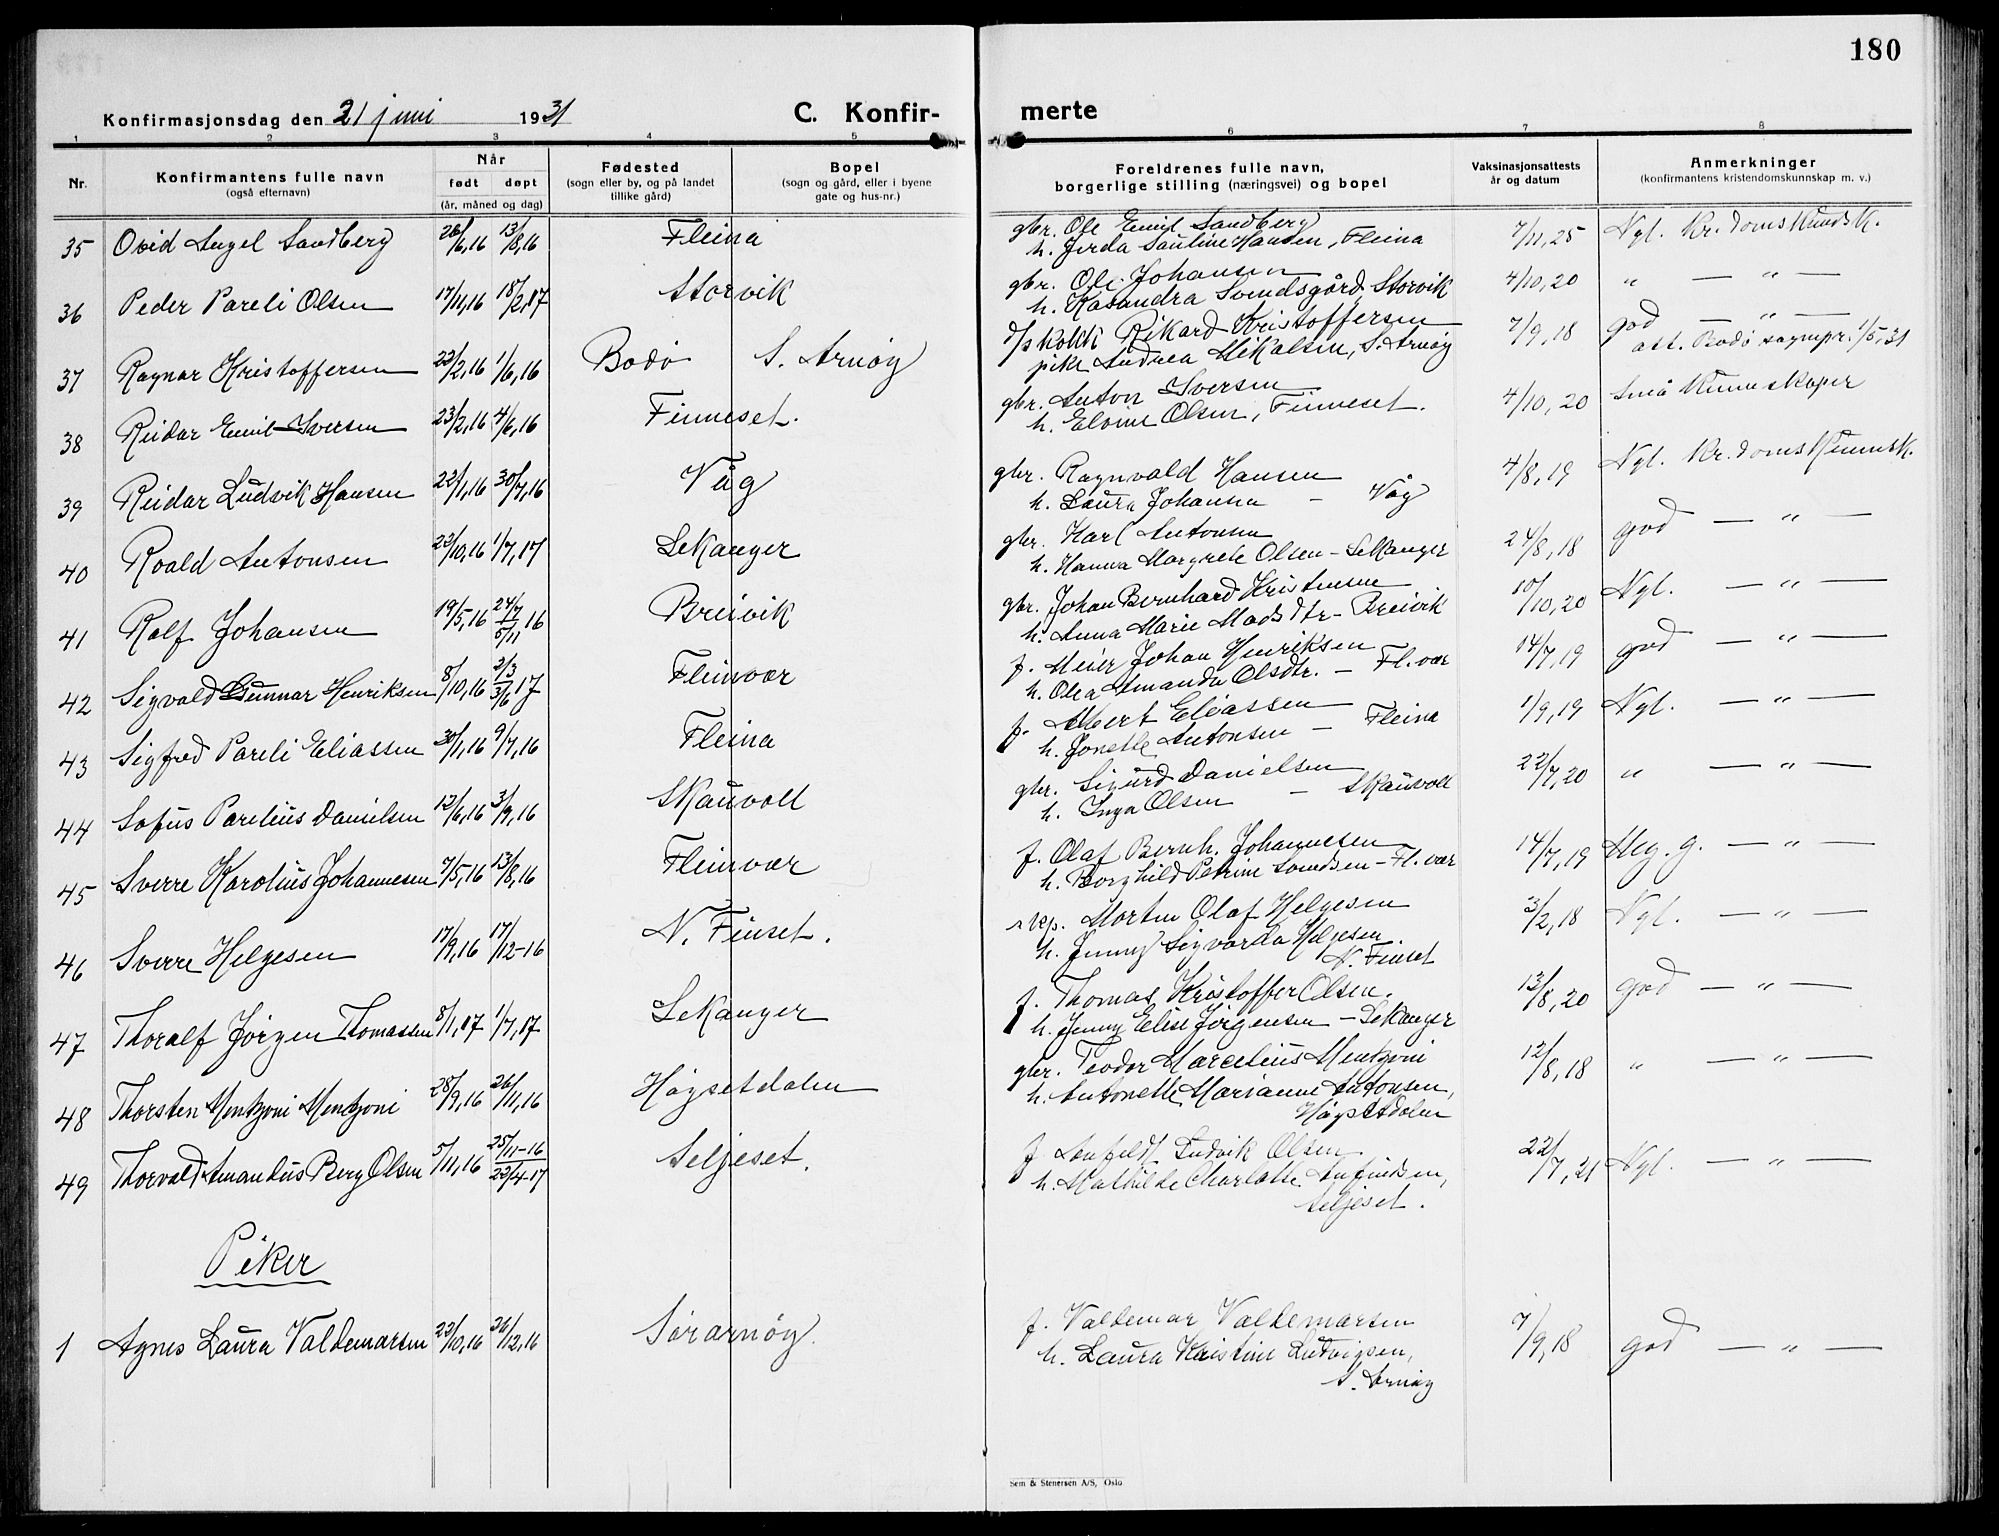 180
Konfirmasjonsdag den 21 juni 1931 C. Konfir- merte
1 2 3 4 5 6 7 8
Nr. Konfirmantens fulle navn (også efternavn) Når født døpt (år, måned og dag) Fødested (sogn eller by, og på landet tillike gård) Bopel (sogn og gård, eller i byene gate og hus-nr.) Foreldrenes fulle navn, borgerlige stilling (næringsvei) og bopel Vaksinasjonsattests år og datum Anmerkninger (konfirmantens kristendomskunnskap m. v.)
35 Ovid Angel Sandberg 26/6,16 13/8,16 Fleina gbr. Ole Emil Sandberg 7/11,25 Ngl. Kr.domskundsk.
h. Jerda Pauline Hansen, Fleina
36 Peder Pareli Olsen 17/11,16 18/2,17 Storvik gbr. Ole Johansen 4/10,20 " — " —
h. Kasandra Svendsgård, Storvik
37 Ragnar Kristoffersen 22/2,16 1/6,16 Bodø S. Arnøy Rikard Kristoffersen 7/9,18 god — " —
pike Andrea Mikalsen, S. Arnøy att. Bodø sognpr. 1/5,31
38 Reidar Emil Iversen 23/2,16 4/6,16 Finneset. gbr. Anton Iversen 4/10,20 Små kunnskaper
h. Elvine Olsen, Finneset.
39 Reidar Ludvik Hansen 22/1,16 30/7,16 Våg gbr. Ragnvald Hansen 4/8,19 Ngl. Kr.domskunnsk.
h. Laura Johanna — Våg
40 Roald Antonsen 22/10,16 1/7,17 Lekanger gbr. Karl Antonsen 24/8,18 god — " —
h. Hanna Margrete Olsen - Lekanger
41 Rolf Johansen 19/5,16 24/7 5/11 16 Breivik gbr. Johan Bernhard Kristensen 10/10,20 Ngl. — " —
h. Anna Marie Madsdtr - Breivik
42 Sigvald Gunnar Henriksen 8/10,16 2/3 3/6 17 Fleinvær f. Meier Johan Henriksen 14/7,19 god — " —
h. Olea Amanda Olsdtr. - Fl.vær
43 Sigfred Pareli Eliassen 30/1,16 9/7,16 Fleina f. Albert Eliassen 1/9,19 Ngl. — " —
h. Jonette Antonsen — Fleina
44 Sofus Parelius Danielsen 12/6,16 3/9,16 Skauvoll gbr. Sigurd Danielsen 22/7,20 " — " —
h. Inga Olsen — Skauvoll
45 Sverre Karolius Johannesen 7/5,16 13/8,16 Fleinvær f. Olaf Bernh. Johannesen 14/7,19 Meg. g. — " —
h. Borghild Petrine - Fl.vær
46 Sverre Helgesen 17/9,16 17/12-16 N. Finset. Morten Olaf Helgesen 3/2,18 Ngl. — " —
h. Jenny Sigvarda Helgesen.
N. Finset
47 Thoralf Jørgen Thomassen 8/1,17 1/7,17 Lekanger f. Thomas Kristoffer Olsen. 13/8,20 god — " —
h. Jenny Elise Jørgensen - Lekanger
48 Thorsten Mentzoni Mentzoni 28/9,16 26/11,16 Høgsetdalen gbr. Teodor Marcelius Mentzoni 12/8,18 " — " —
h. Antonette Marianne Antonsen,
Høgsetdalen
49 Thorvald Amandus Berg Olsen 5/11,16 25/11-16 22/4-17 Seljeset. f. Ludvik Olsen 22/7,21 Ngl. — " —
h. Mathilde Charlotte Anfindsen,
Seljeset.
Piker
1 Agnes Laura Valdemarsen 22/10,16 26/12,16 Sørarnøy. f. Valdemar Valdemarsen 7/9,18 god — " —
h. Laura Kristine Ludvigsen,
S. Arnøy
Sem & Stenersen A/S, Oslo